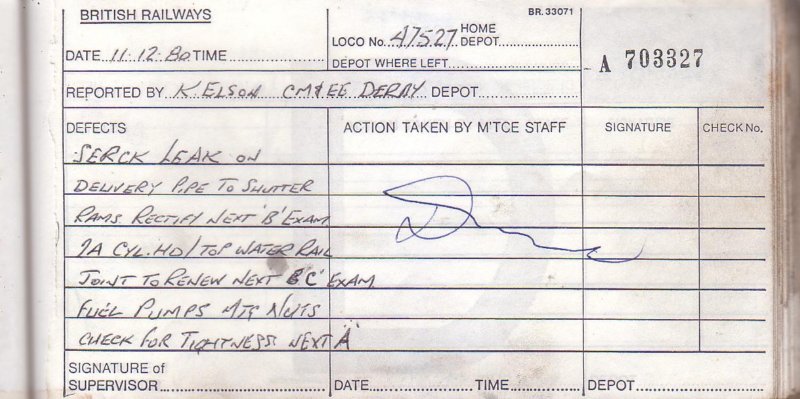 BRITISH RAILWAYS
BR.33071
DATE 11-12-80 TIME
LOCO No. 47527 HOME DEPOT
DEPOT WHERE LEFT
A 703327
REPORTED BY K ELSON CM&EE DERBY DEPOT
DEFECTS ACTION TAKEN BY M'TCE STAFF SIGNATURE CHECK No.
SERCK LEAK ON
DELIVERY PIPE TO SHUTTER
RAMS RECTIFY NEXT 'B' EXAM
7A CYL.HD/TOP WATER RAIL
JOINT TO RENEW NEXT 'C' EXAM
FUEL PUMPS MTG NUTS
CHECK FOR TIGHTNESS NEXT A
SIGNATURE of
SUPERVISOR DATE TIME DEPOT